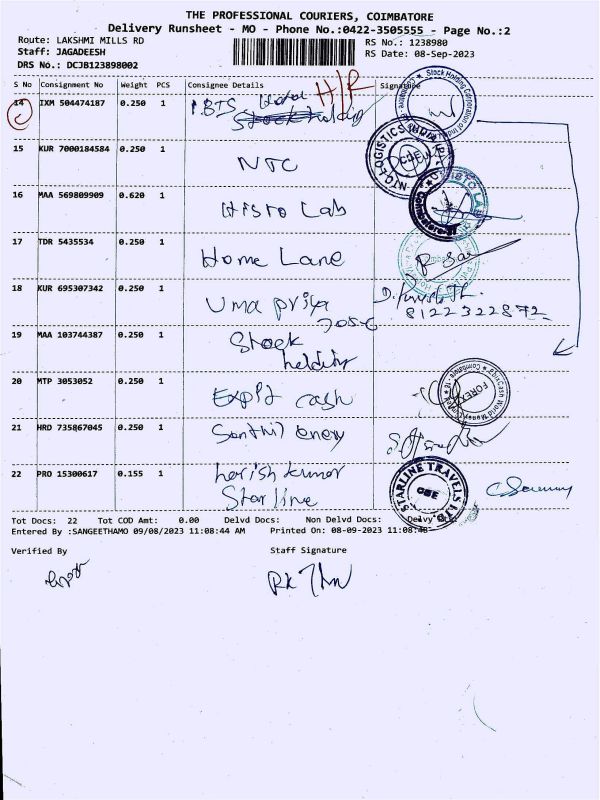 THE PROFESSIONAL COURIERS, COIMBATORE
Delivery Runsheet - MO - Phone No.:0422-3505555 - Page No.:2
Route: LAKSHMI MILLS RD
RS No.: 1238980
Staff: JAGADEESH
RS Date: 08-Sep-2023
DRS No.: DCJB123898002
S No Consignment No Weight PCS Consignee Details Signature
14 IXM 504474187 0.250 1 H/R
Stock holding
15 KUR 7000184584 0.250 1 NTC
NTC LOGISTICS
16 MAA 569809909 0.620 1 Histo Lab
17 TDR 5435534 0.250 1 Home Lane
18 KUR 695307342 0.250 1 Uma priya
7056
8122322872
19 MAA 103744387 0.250 1 Stock
holding
20 MTP 3053052 0.250 1 cash
FOREX
21 HRD 735867045 0.250 1 Senthil
22 PRO 15300617 0.155 1 harish kumar
Starline
STARLINE TRAVELS
CBE
Tot Docs: 22 Tot COD Amt: 0.00 Delvd Docs: Non Delvd Docs: Delvy
Entered By :SANGEETHAMO 09/08/2023 11:08:44 AM Printed On: 08-09-2023 11:08:48
Verified By Staff Signature